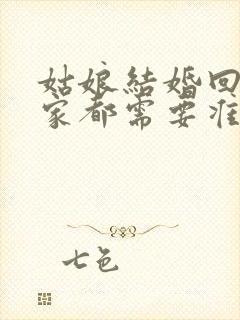 姑娘結婚回
家都需要准
七色